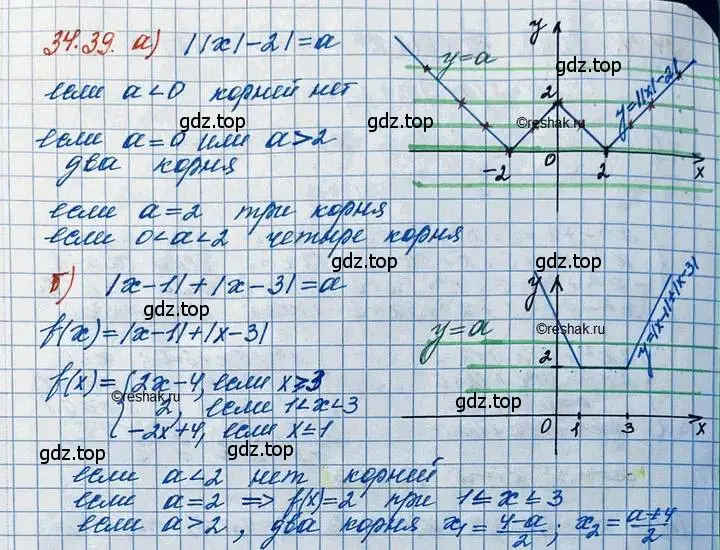 34.39. а) ||x|-2|=a
если a<0 корней нет
если a=0 или a>2
два корня
если a=2 три корня
если 0<a<2 четыре корня
y
y=a
2
y=||x|-2|
-2
0
2
x
б) |x-1|+|x-3|=a
f(x)=|x-1|+|x-3|
f(x)={2x-4, если x≥3
2, если 1<x<3
-2x+4, если x≤1
y
y=a
2
y=|x-1|+|x-3|
0
1
3
x
если a<2 нет корней
если a=2 => f(x)=2 при 1≤x≤3
если a>2, два корня x₁=(4-a)/2; x₂=(a+4)/2
gdz.top
gdz.top
gdz.top
gdz.top
gdz.top
gdz.top
gdz.top
gdz.top
gdz.top
gdz.top
gdz.top
gdz.top
©reshak.ru
©reshak.ru
©reshak.ru